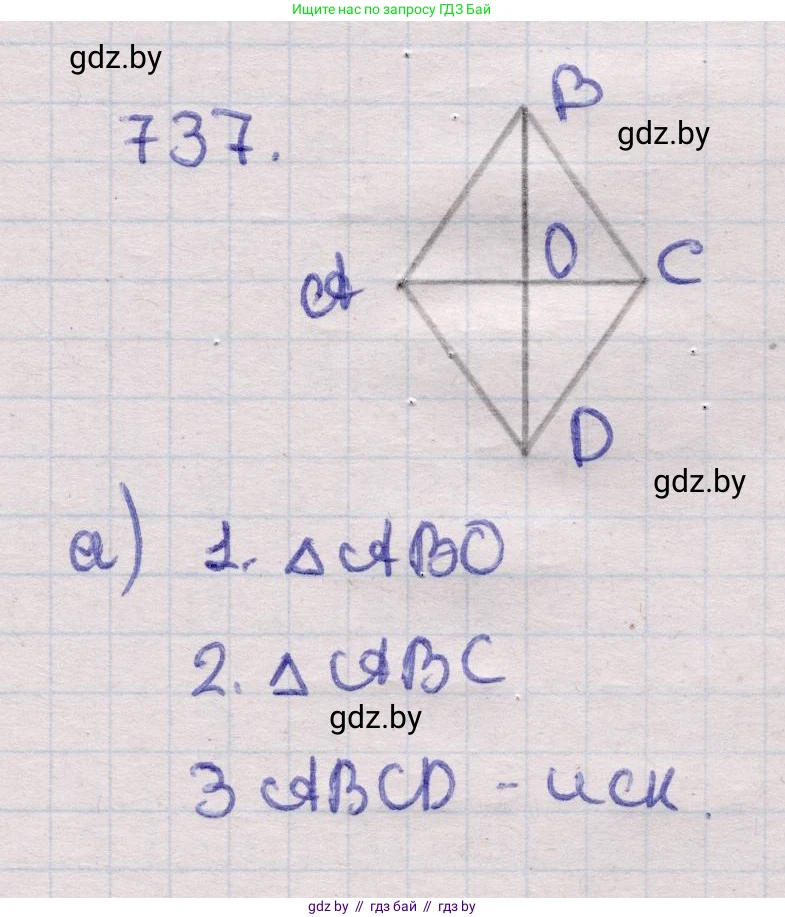 Ищите нас по запросу ГДЗ Бай
gdz.by
737.
B
gdz.by
O
C
A
D
gdz.by
а) 1. △ABO
2. △ABC
gdz.by
3 ABCD - иск.
gdz.by // гдз бай // гдз by